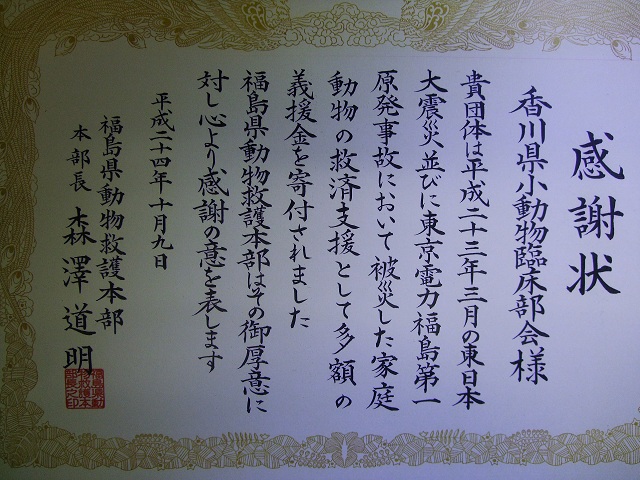 感謝状
香川県小動物臨床部会様
貴団体は平成二十三年三月の東日本
大震災並びに東京電力福島第一
原発事故において被災した家庭
動物の救済支援として多額の
義援金を寄付されました
福島県動物救護本部はその御厚意に
対し心より感謝の意を表します
平成二十四年十月九日
福島県動物救護本部
本部長 森澤道明